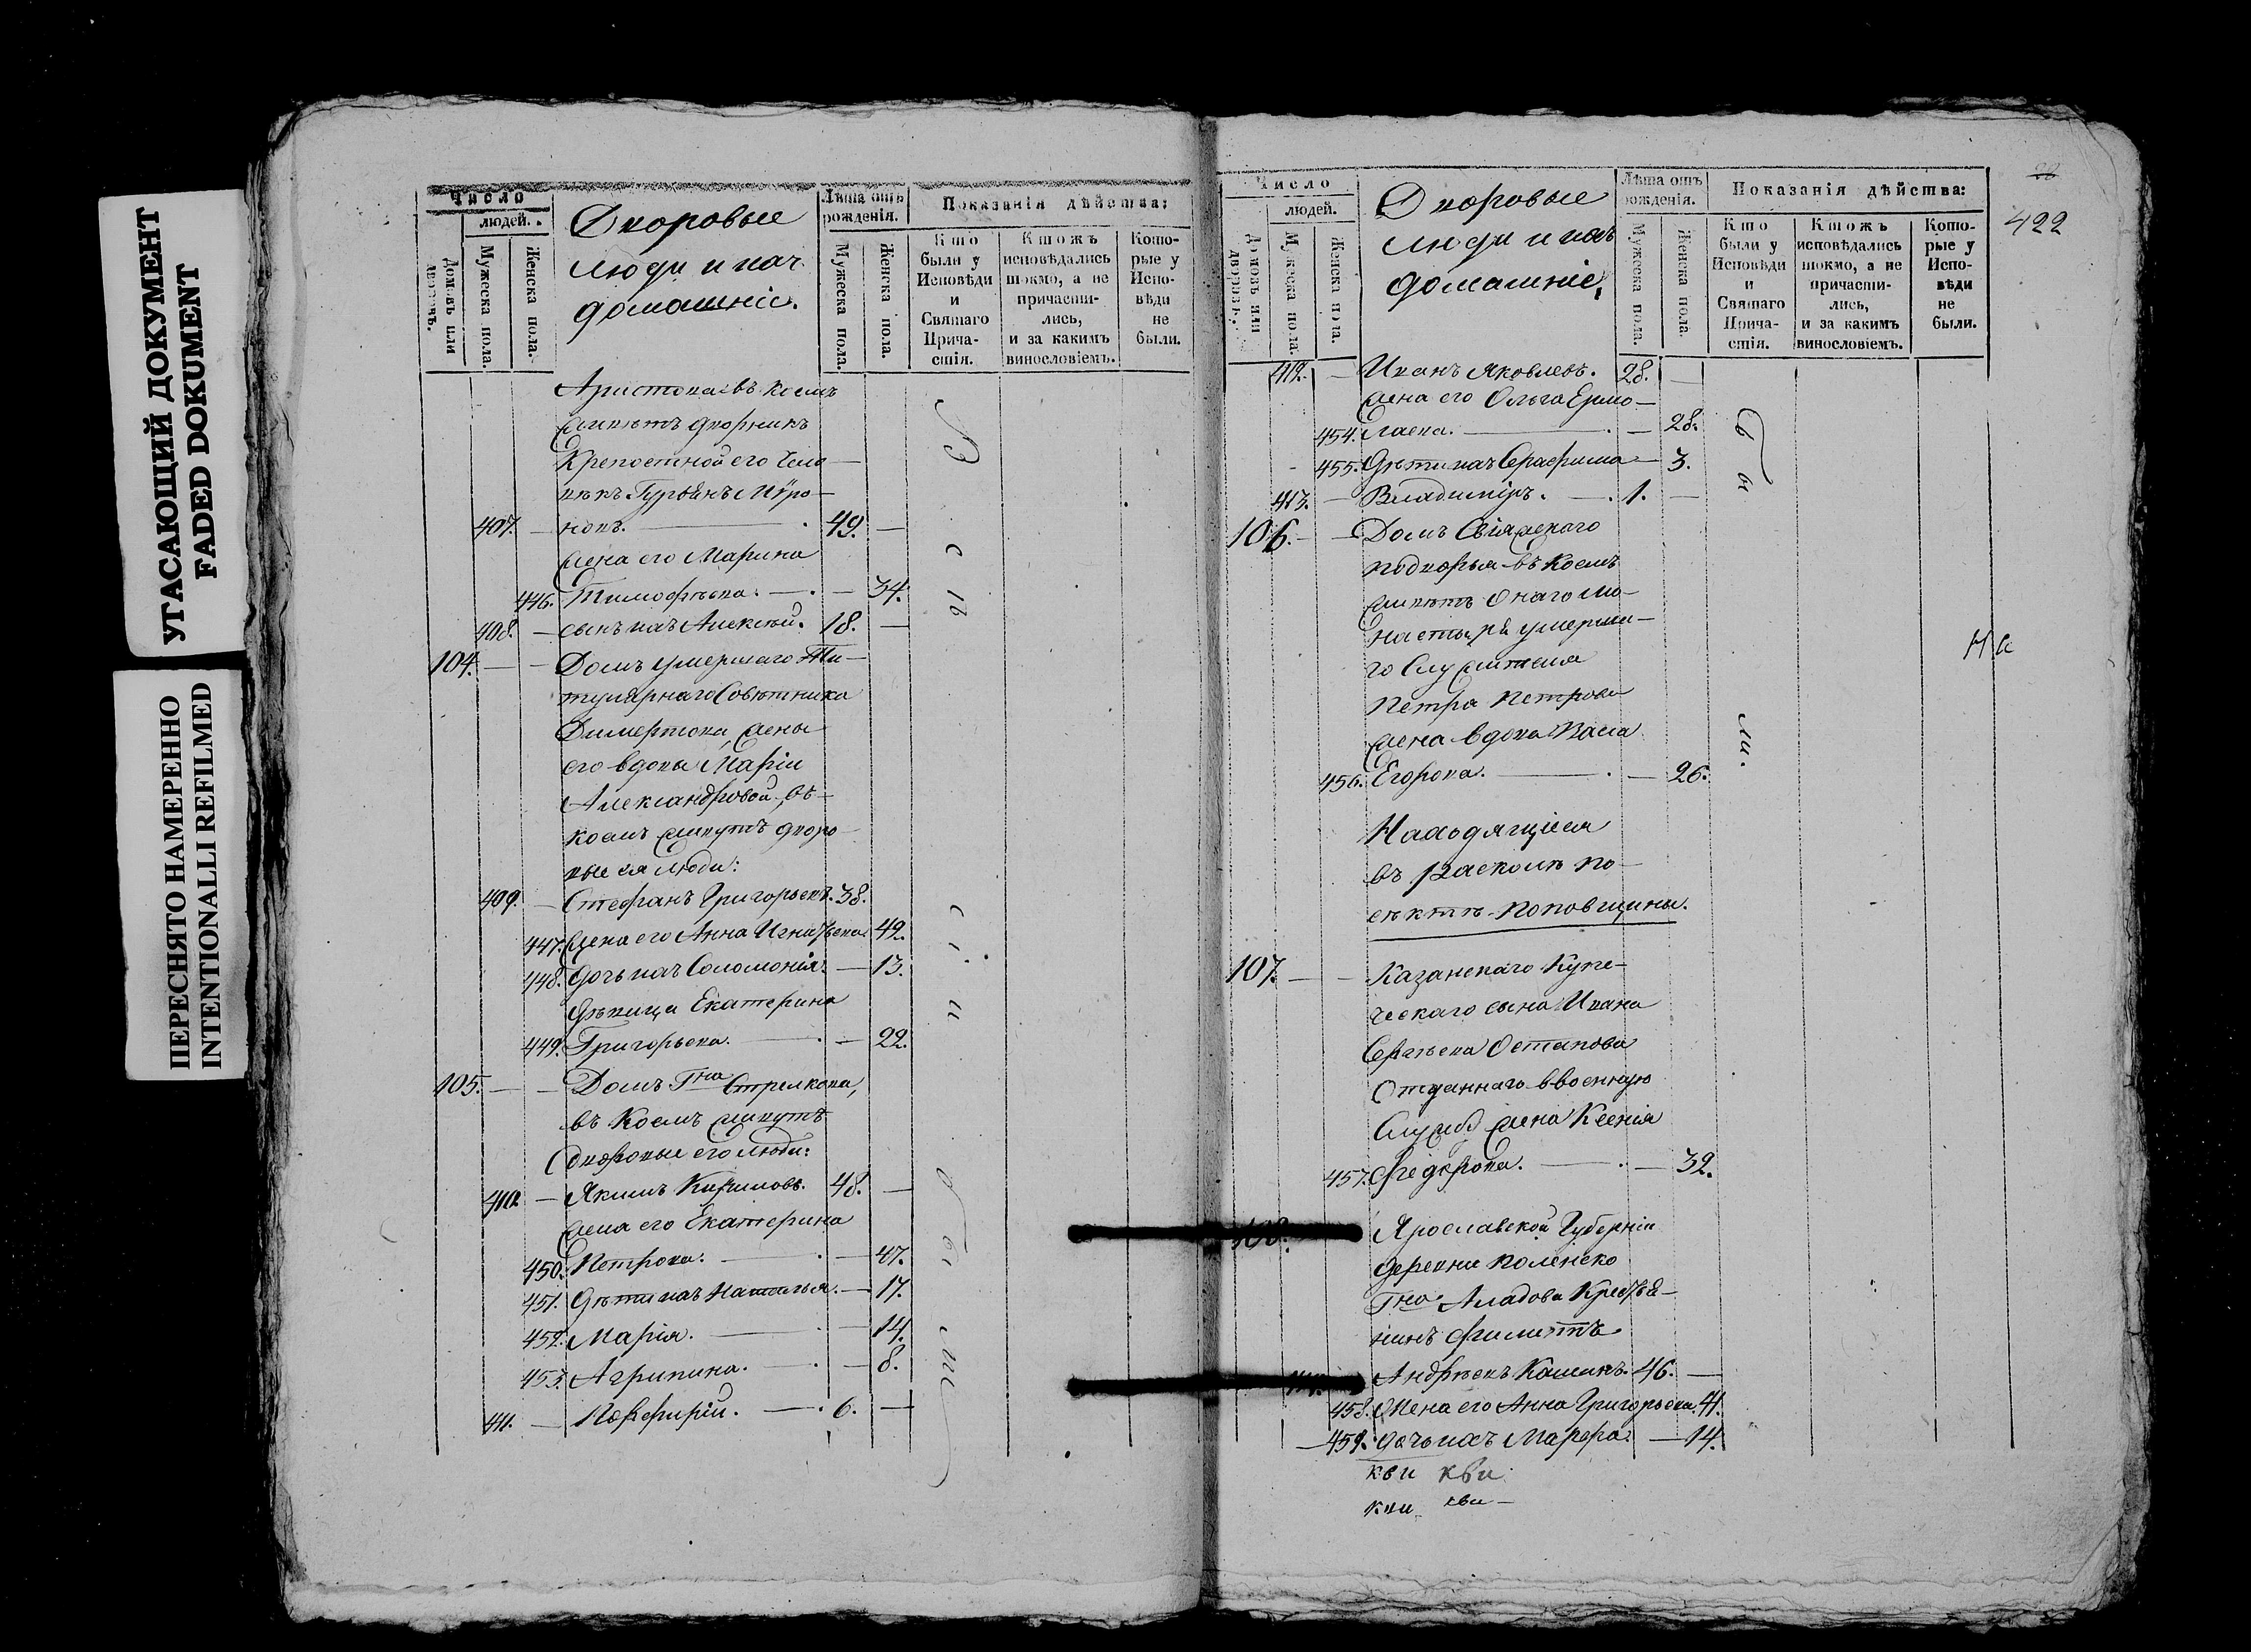 УГАСАЮЩИЙ ДОКУМЕНТ
FADED DOKUMENT
ПЕРЕСНЯТО НАМЕРЕННО
INTENTIONALLI REFILMED
Число
людей.
Домовъ или дворовъ.
Мужеска пола.
Женска пола.
Дворовые
люди и ихъ
домашніе.
Лѣта отъ рожденія.
Мужеска пола.
Женска пола.
Показанія дѣйства:
Кто были у Исповѣди и Святаго Причастія.
Ктожъ исповѣдались токмо, а не причастились, и за какимъ винословіемъ.
Которые у Исповѣди не были.
въ коемъ
живетъ дворникъ
Крепостной его чело-
вѣкъ Мѵро-
407. — новъ. — 49. —
жена его Марина
446. Тимофѣева. — 34.
408. — сынъ ихъ Алексѣй. 18. —
104. — — Домъ умершаго Ти-
тулярнаго Совѣтника
жены
его вдовы Маріи
Александровой, въ
коемъ живутъ дворо-
вые ея люди:
409. — Стефанъ Григорьевъ. 38.
447. жена его Анна Игнатьева. 42.
448. дочь ихъ Соломонія. — 13.
дѣвица Екатерина
449. Григорьева. — 22.
105. — — Домъ Гна Стрелкова,
въ коемъ живутъ
дворовые его люди:
410. — Якимъ Кириловъ. 48. —
жена его Екатерина
450. Петрова. — 47.
451. дѣти ихъ Наталья. — 17.
452. Марія. — 14.
453. Агрипина. — 8.
411. — Порфирій. — 6. —
Число
людей.
Домовъ или дворовъ.
Мужеска пола.
Женска пола.
Дворовые
люди и ихъ
домашніе,
Лѣта отъ рожденія.
Мужеска пола.
Женска пола.
Показанія дѣйства:
Кто были у Исповѣди и Святаго Причастія.
Ктожъ исповѣдались токмо, а не причастились, и за какимъ винословіемъ.
Которые у Исповѣди не были.
422
412. — Иванъ Яковлевъ. 28. —
жена его Ольга Ермо-
454. лаева. — 28.
455. дѣти ихъ Серафима — 3.
413. — Владиміръ. — 1. —
106. — — Домъ Свіяжскаго
подворья въ коемъ
живетъ онаго мо-
настыря умерша-
го служителя
Петра Петрова
жена вдова
456. Егорова. — 26.
Находящіеся
въ расколѣ по
сектѣ поповщины.
107. — — Казанскаго купе-
ческаго сына Ивана
Сергѣева Остапова
отданнаго въ военную
службу жена Ксенія
457. Федорова. — 32.
108. Ярославской Губерніи
деревни
Гна Крестья-
нинъ Филиппъ
Андрѣевъ Кашинъ. 46. —
458. Жена его Анна Григорьева. 41.
459. дочь ихъ Марфа. — 14.
кви кви
кви кви